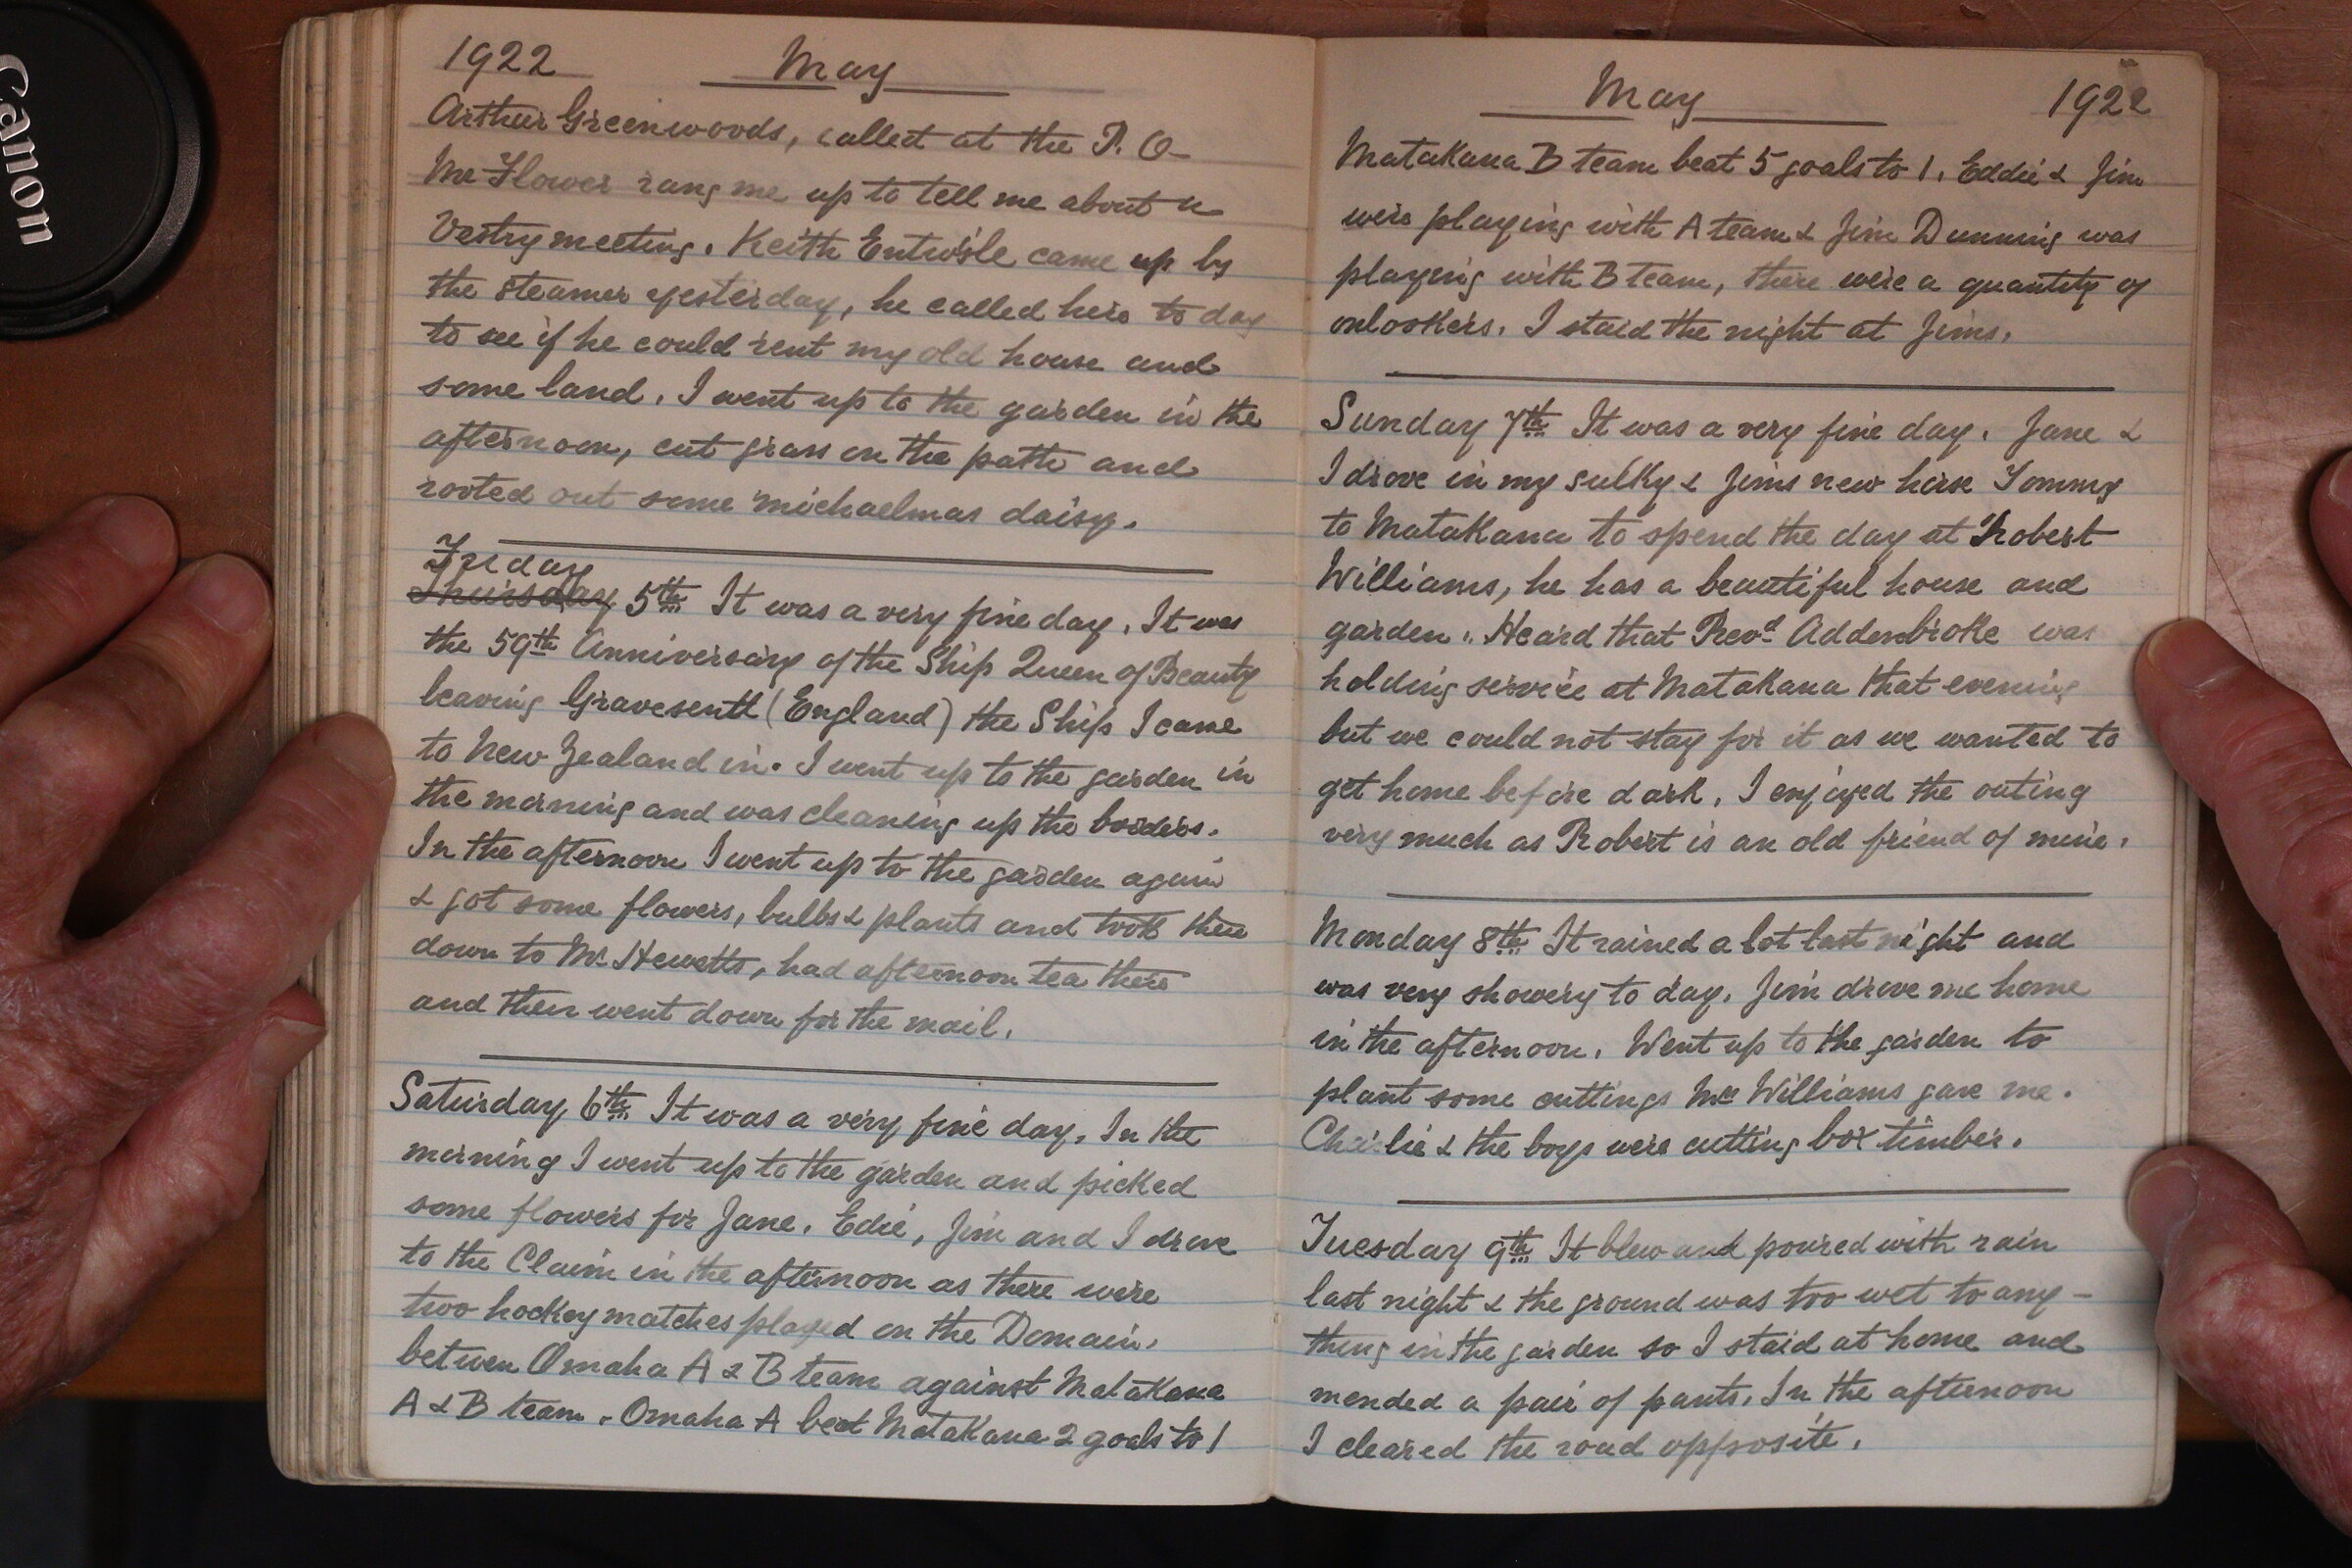 Canon
1922 May
Arthur Greenwoods, called at the P. O-
Mr Flower rang me up to tell me about a
Vestry meeting. Keith Entwisle came up by
the steamer yesterday, he called here to day
to see if he could rent my old house and
some land. I went up to the garden in the
afternoon, cut grass on the path and
rooted out some michaelmas daisy.
Friday
Thursday 5th It was a very fine day. It was
the 59th Anniversary of the Ship Queen of Beauty
leaving Gravesend (England) the Ship I came
to New Zealand in. I went up to the garden in
the morning and was cleaning up the borders.
In the afternoon I went up to the garden again
& got some flowers, bulbs & plants and took them
down to Mr Hewetts, had afternoon tea there
and then went down for the mail.
Saturday 6th It was a very fine day. In the
morning I went up to the garden and picked
some flowers for Jane. Edie, Jim and I drove
to the Claim in the afternoon as there were
two hockey matches played on the Domain.
betwen Omaha A & B team against Matakana
A & B team. Omaha A beat Matakana 2 goals to 1
May 1922
Matakana B team beat 5 goals to 1. Eddie & Jim
were playing with A team & Jim Dunning was
playing with B team, there were a quantity of
onlookers. I staid the night at Jims.
Sunday 7th It was a very fine day. Jane &
I drove in my sulky & Jims new horse Tommy
to Matakana to spend the day at Robert
Williams, he has a beautiful house and
garden. Heard that Revd Addenbroke was
holding service at Matakana that evening
but we could not stay for it as we wanted to
get home before dark. I enjoyed the outing
very much as Robert is an old friend of mine.
Monday 8th It rained a lot last night and
was very showery to day. Jim drove me home
in the afternoon. Went up to the garden to
plant some cuttings Mrs Williams gave me.
Charlie & the boys were cutting box timber.
Tuesday 9th It blew and poured with rain
last night & the ground was too wet to any-
thing in the garden so I staid at home and
mended a pair of pants. In the afternoon
I cleared the road opposite.